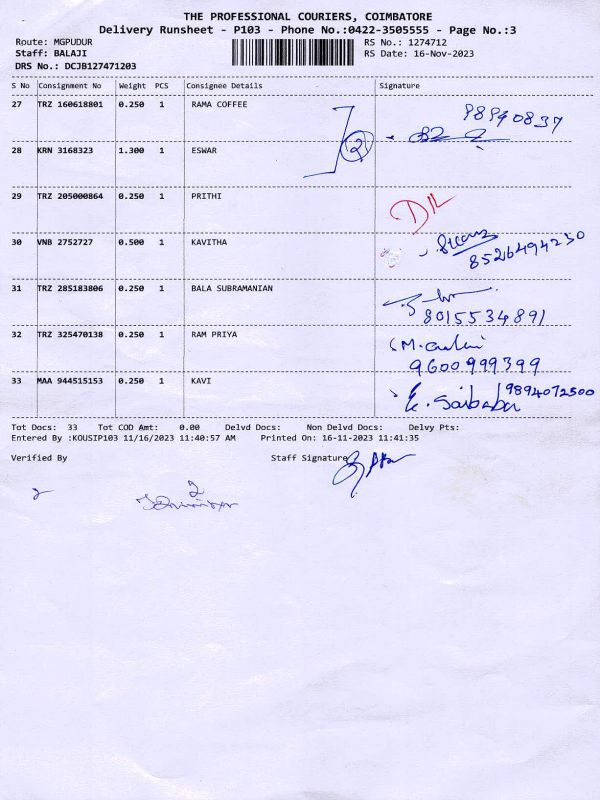 THE PROFESSIONAL COURIERS, COIMBATORE
Delivery Runsheet - P103 - Phone No.:0422-3505555 - Page No.:3
Route: MGPUDUR RS No.: 1274712
Staff: BALAJI RS Date: 16-Nov-2023
DRS No.: DCJB127471203
S No Consignment No Weight PCS Consignee Details Signature
27 TRZ 160618801 0.250 1 RAMA COFFEE
2
28 KRN 3168323 1.300 1 ESWAR
29 TRZ 205000864 0.250 1 PRITHI
30 VNB 2752727 0.500 1 KAVITHA
8526494230
31 TRZ 285183806 0.250 1 BALA SUBRAMANIAN
8015534891
32 TRZ 325470138 0.250 1 RAM PRIYA
9600999399
33 MAA 944515153 0.250 1 KAVI 9894072500
K. Saibaba
Tot Docs: 33 Tot COD Amt: 0.00 Delvd Docs: Non Delvd Docs: Delvy Pts:
Entered By :KOUSIP103 11/16/2023 11:40:57 AM Printed On: 16-11-2023 11:41:35
Verified By Staff Signature